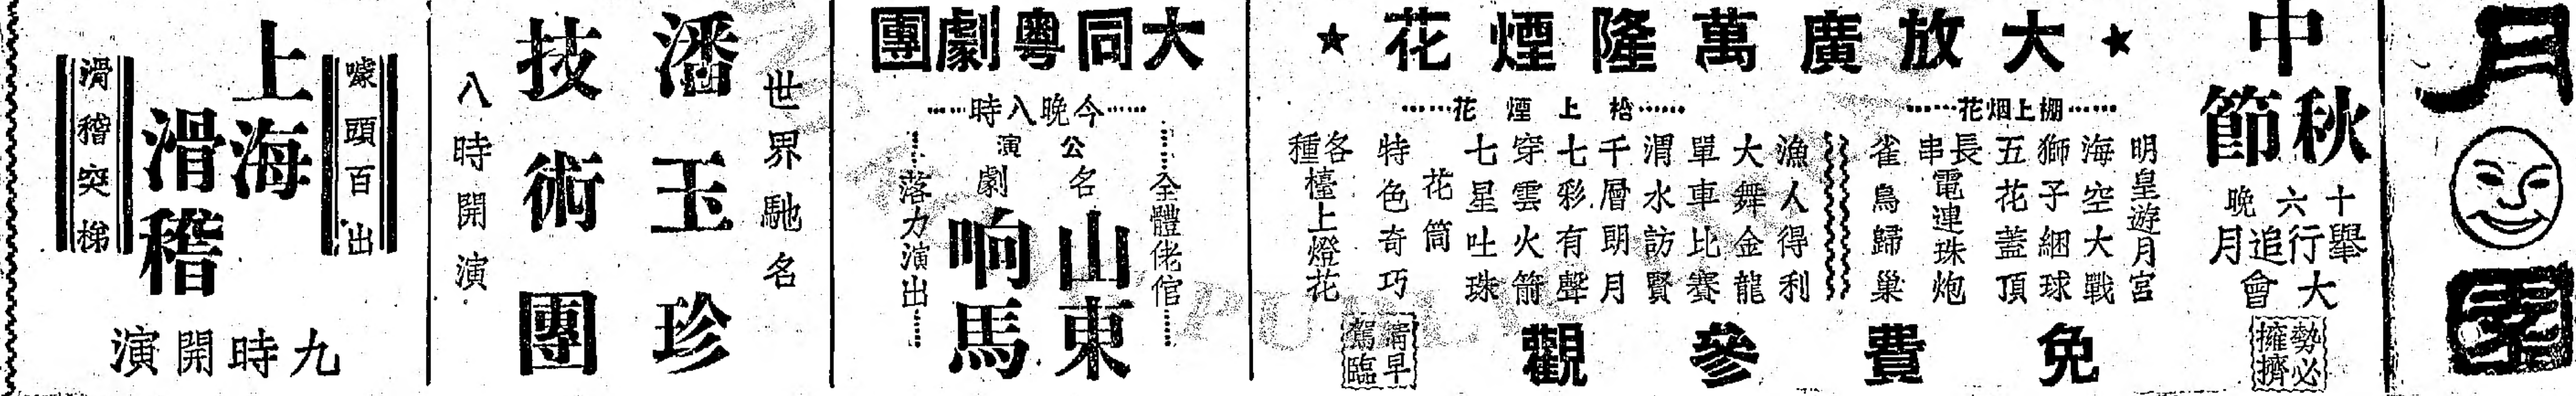 月園
中秋節
十六晚
舉行追月大會
勢必擁擠
★大放廣萬隆煙花★
……棚上烟花……
明皇遊月宮
海空大戰
獅子綑球
五花蓋頂
長串電連珠炮
雀鳥歸巢
……枱上煙花……
漁人得利
大舞金龍
單車比賽
渭水訪賢
千層朗月
七彩有聲
穿雲火箭
七星吐珠
花筒
特色奇巧
各種檯上燈花
免費參觀
請早駕臨
大同粵劇團
……今晚八時……
……全體佬倌……
公演名劇
山東响馬
……落力演出……
世界馳名
潘玉珍
技術團
八時開演
噱頭百出
上海
滑稽
滑稽突梯
九時開演